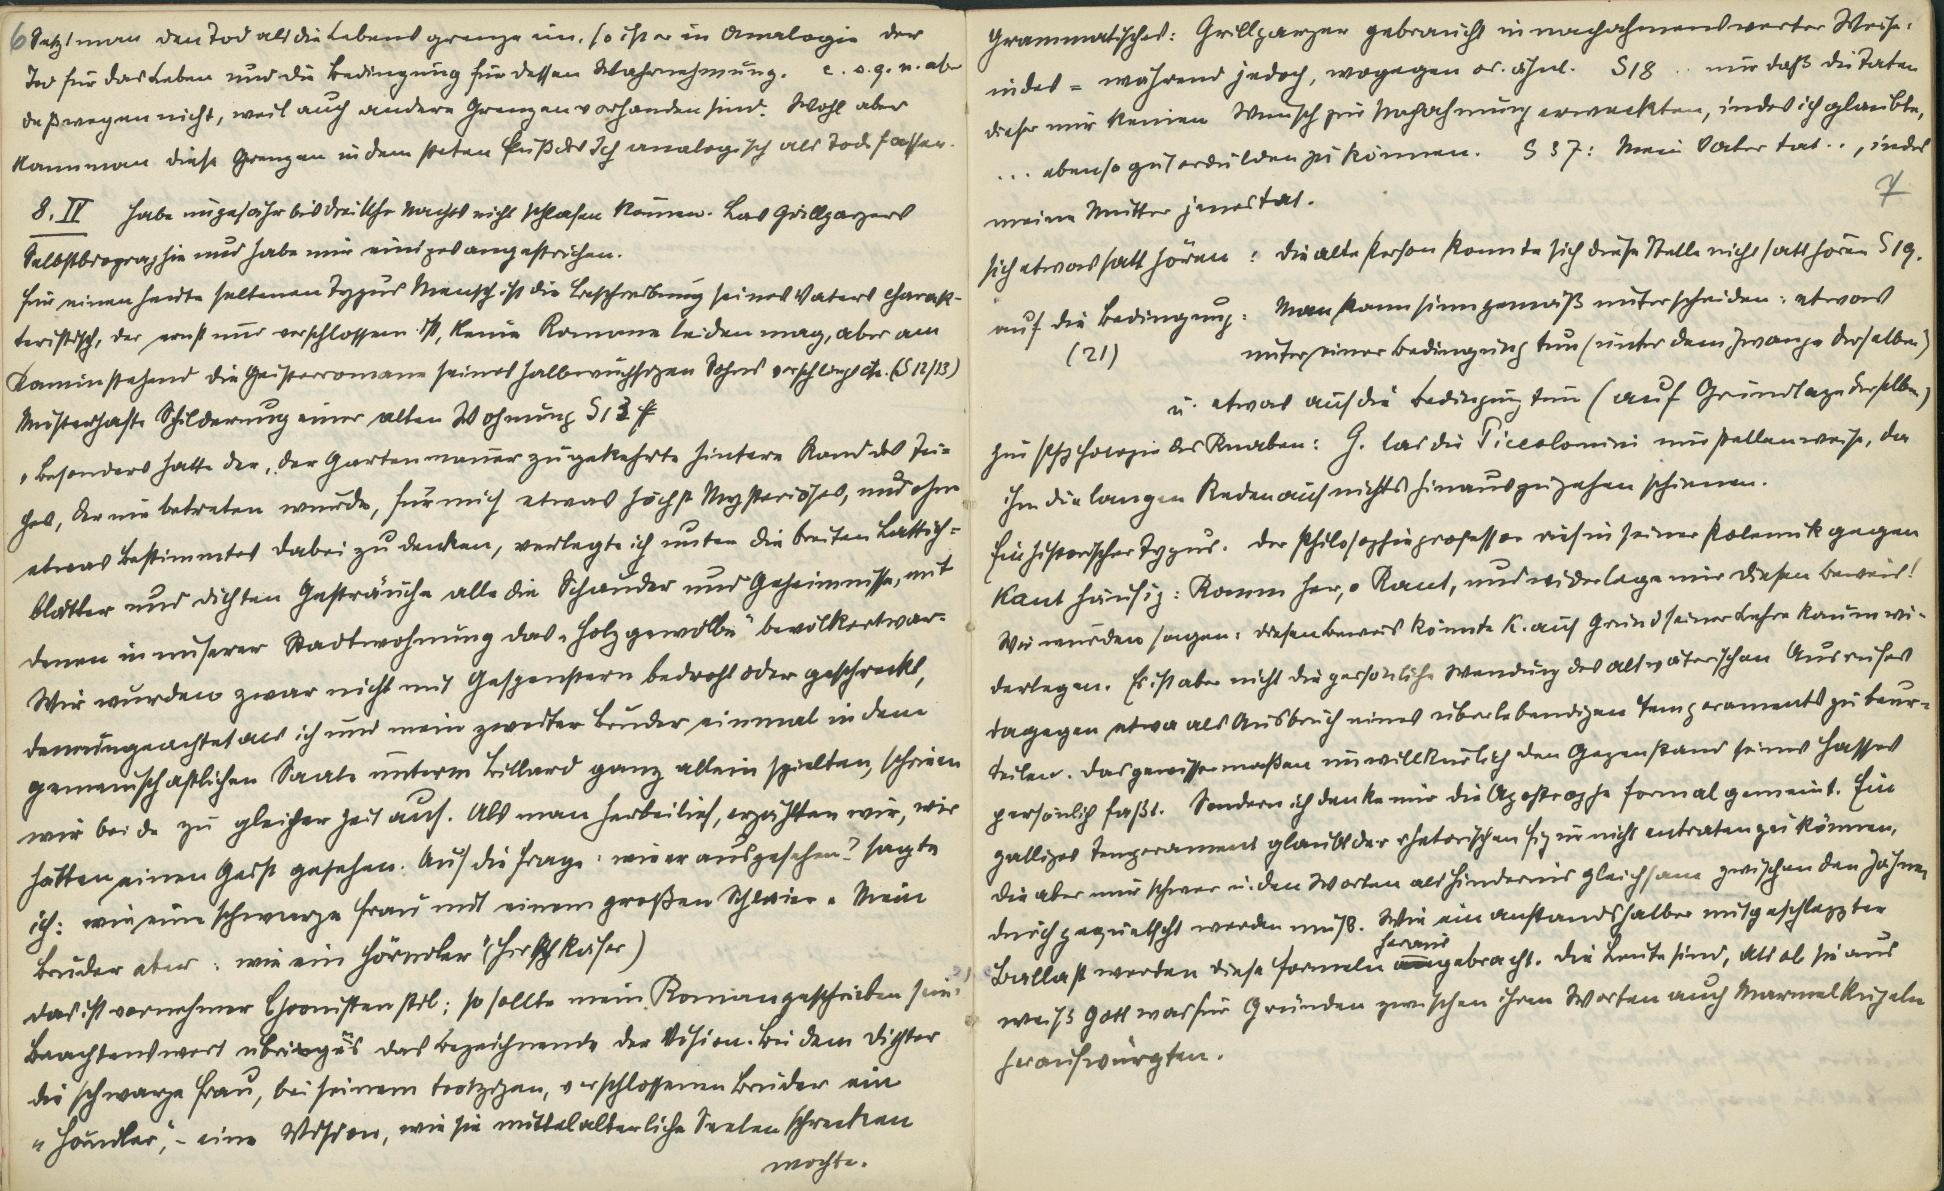 6 Setzt man den Tod als die Lebensgrenze ein, so ist er in Analogie der
Tod für das Leben und die Bedingung für dessen Wahrnehmung. c. s. g. n. aber
deßwegen nicht, weil auch andere Grenzen vorhanden sind. Wohl aber
kann man diese Grenzen in dem steten Fluß des Ich analogisch als Tode fassen.
8. IV Habe ungefähr bis drei Uhr Nachts nicht schlafen können. Las Grillparzers
Selbstbiographie und habe mir einiges angestrichen.
Für einen heute seltenen Typus Mensch ist die Beschreibung seines Vaters charak-
teristisch, der ernst und verschlossen ist, keine Romane leiden mag, aber am
Kamin stehend die Geisterromane seines halbwüchsigen Sohnes verschlingt etc. (S 12/13)
Musterhafte Schilderung einer alten Wohnung S 13 ff
„Besonders hatte der, der Gartenmauer zugekehrte hintere Rand des Tei-
ches, der nie betreten wurde, für mich etwas höchst Mysteriöses, und ohne
etwas Bestimmtes dabei zu denken, verlegte ich unter die breiten Lattich-
blätter und dichten Gesträuche alle die Schauder und Geheimnisse, mit
denen in unserer Stadtwohnung das „Holzgewölbe" bevölkert war.
Wir wurden zwar nicht mit Gespenstern bedroht oder geschreckt,
demungeachtet als ich und mein zweiter Bruder einmal in dem
gemeinschaftlichen Saale unterm Billard ganz allein spielten, schrieen
wir beide zu gleicher Zeit auf. Als man herbeilief, erzählten wir, wir
hätten einen Geist gesehen. Auf die Frage: wie er ausgesehen? sagte
ich: wie eine schwarze Frau mit einem großen Schleier. Mein
Bruder aber: wie ein Hörndler" (Hirschkäfer)
Das ist vornehmer Chronistenstil; so sollte mein Roman geschrieben sein!
Beachtenswert übrigens das Bezeichnende der Vision. Bei dem Dichter
die schwarze Frau, bei seinem trotzigen, verschlossenen Bruder ein
„Hörndler", – eine Vision, wie sie mittelalterliche Seelen schrecken
mochte.
Grammatisches: Grillparzer gebraucht in nachahmenswerter Weise:
indes = während jedoch, wogegen od. ähnl. S 18 .. nur daß die Taten
dieser mir keinen Wunsch zur Nachahmung erweckten, indes ich glaubte,
... ebenso gut erdulden zu können. S 37: Mein Vater tat .., indes
meine Mutter jenes tat.
7
sich etwas satt hören: Die alte Person konnte sich diese Stelle nicht satt hören S 19.
auf die Bedingung: Man kann sinngemäß unterscheiden: etwas
(21) unter einer Bedingung tun (unter dem Zwange derselben)
u. etwas auf die Bedingung tun (auf Grundlage derselben)
Zur Psychologie des Knaben: G. las die Piccolomini nur stellenweise, da
ihm die langen Reden auf nichts hinauszugehen schienen.
Ein historischer Typus. Der Philosophieprofessor rief in seiner Polemik gegen
Kant häufig: Komm her, o Kant, und widerlege mir diesen Beweis!
Wir würden sagen: diesen Beweis könnte K. auf Grund seiner Lehre kaum wi-
derlegen. Es ist aber nicht die persönliche Wendung des altväterischen Ausrufes
dagegen etwa als Ausbruch eines überlebendigen Temperaments zu beur-
teilen. Das gewissermaßen unwillkürlich den Gegenstand seines Hasses
persönlich faßt. Sondern ich denke mir die Apostrophe formal gemeint. Ein
galliges Temperament glaubt der rhetorischen Figur nicht entraten zu können,
die aber nur schwer u. den Worten als Hindernis gleichsam zwischen den Zähnen
durchgequetscht werden muß. Wie ein anstandshalber mitgeschleppter
heraus
Ballast werden diese Formeln angebracht. Die Leute sind, als ob sie aus
weiß Gott was für Gründen zwischen ihren Worten auch Marmelkugeln
heraufwürgten.